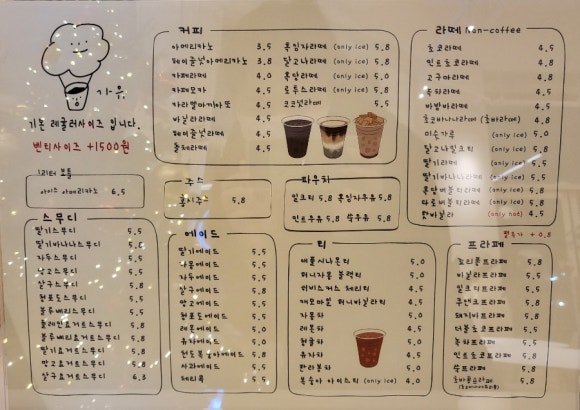 기본 레귤러사이즈 입니다.
벤티사이즈 +1500원
1리터 보틀
아이스 아메리카노 6.5
커피
아메리카노 3.5
헤이즐넛아메리카노 3.8
카페라떼 4.0
카페모카 4.5
카라멜마끼아또 4.5
바닐라라떼 4.5
헤이즐넛라떼 4.5
돌체라떼 4.5
흑임자라떼 (only ice) 5.8
달고나라떼 (only ice) 5.8
흑당라떼 (only ice) 5.8
로투스라떼 (only ice) 5.8
코코넛라떼 5.5
라떼 Non-coffee
초코라떼 4.5
민트초코라떼 4.8
고구마라떼 4.5
녹차라떼 4.5
바밤라떼 4.5
초코바나나라떼 4.8
미숫가루 (only ice) 5.0
달고나밀크티 (only ice) 5.8
딸기라떼 (only ice) 5.5
딸기바나나라떼 (only ice) 5.8
흑당버블티라떼 (only ice) 5.8
타로버블티라떼 (only ice) 5.8
밤바닐라 (only hot) 4.5
펄추가 +0.8
주스
5.8
파우치
밀크티 5.8
흑임자우유 5.8
민트우유 5.8
쑥우유 5.8
스무디
딸기스무디 5.5
딸기바나나스무디 5.8
자두스무디 5.5
망고스무디 5.5
살구스무디 5.8
청포도스무디 5.5
블루베리스무디 5.5
플레인요거트스무디 5.8
블루베리요거트스무디 5.8
딸기요거트스무디 5.8
망고요거트스무디 5.8
살구요거트스무디 6.3
에이드
딸기에이드 5.5
자몽에이드 5.5
자두에이드 5.5
살구에이드 5.8
망고에이드 5.5
청포도에이드 5.5
레몬에이드 5.0
유자에이드 5.0
천도복숭아에이드 5.8
사과에이드 5.5
체리콕 5.5
티
애플시나몬티 5.0
허니자몽 블랙티 5.0
히비스커스 체리티 4.5
캐모마일 허니바닐라티 4.5
자몽차 5.0
레몬차 4.5
청귤차 5.0
유자차 4.5
한라봉차 5.0
복숭아 아이스티 (only ice) 4.0
프라페
초리플프라페 5.8
바닐라프라페 5.5
밀크티프라페 5.5
쿠앤크프라페 5.8
돼지바프라페 5.8
더블초코프라페 5.8
녹차프라페 5.5
민트초코프라페 5.8
쑥프라페 5.8
5.8